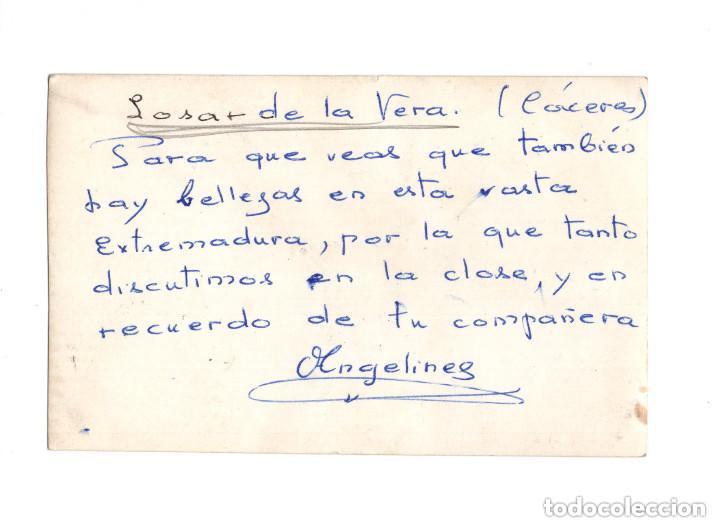 Losar de la Vera. (Cáceres)
Para que veas que también
hay bellezas en esta vasta
Extremadura, por la que tanto
discutimos en la clase, y en
recuerdo de tu compañera
Angelines
todocoleccion.net